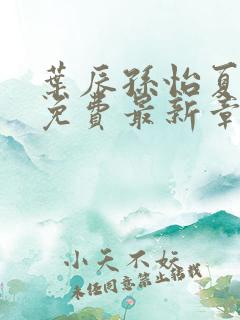 葉辰孫怡夏
免費最新章
小天不妖
未经同意禁止转载